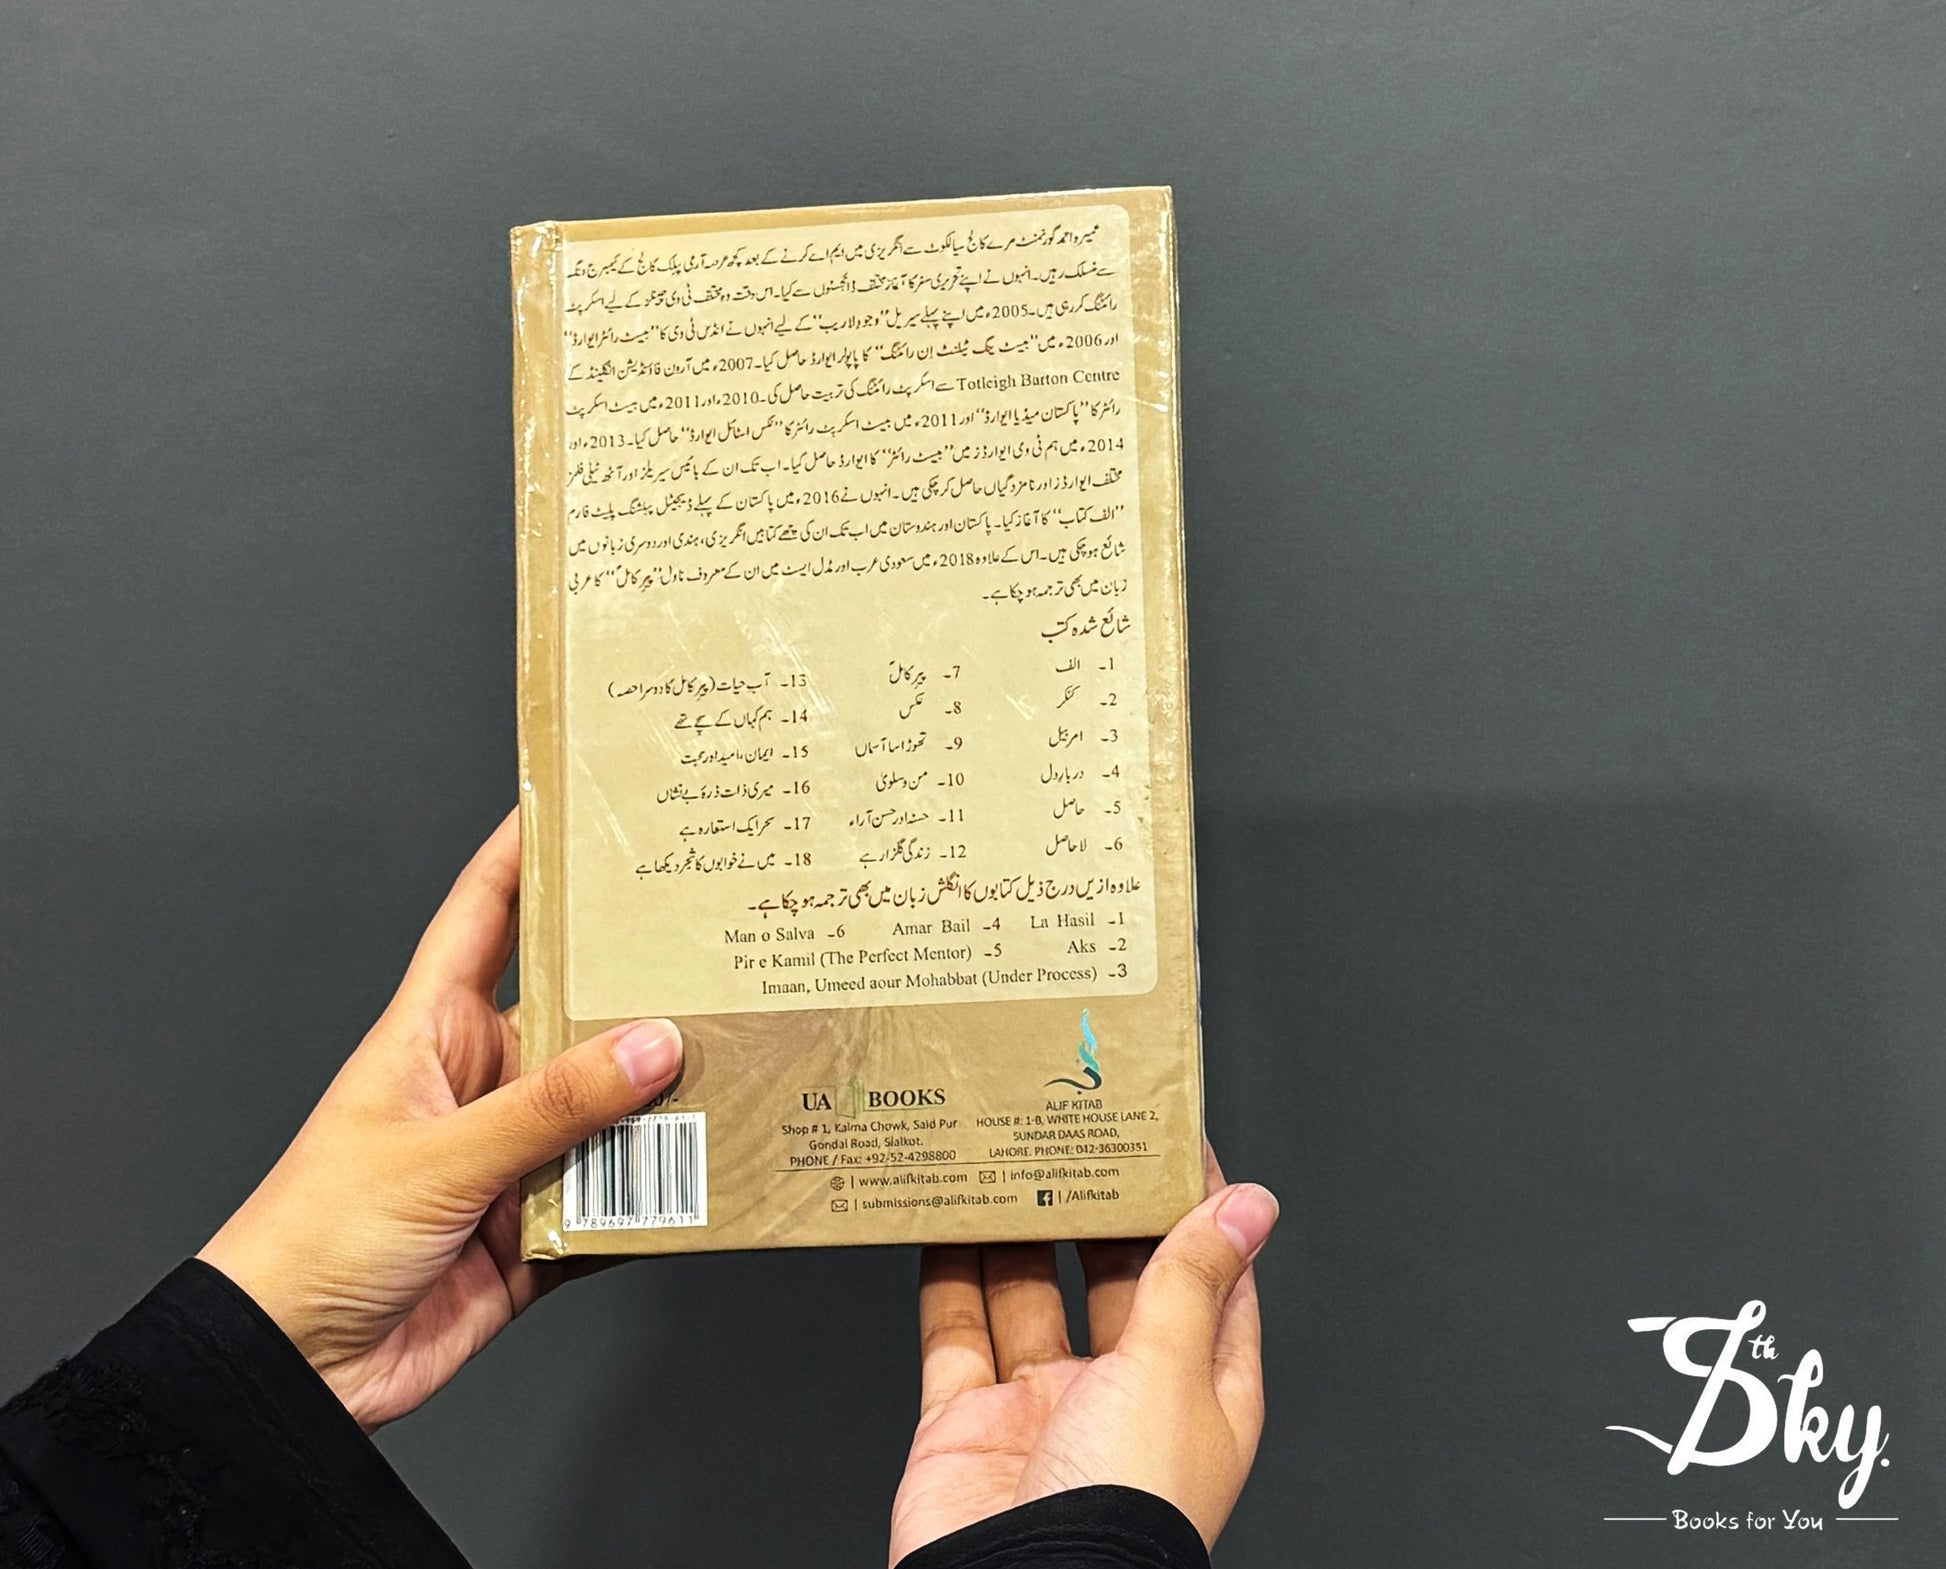 عمیرہ احمد گورنمنٹ مرے کالج سیالکوٹ سے انگریزی میں ایم اے کرنے کے بعد کچھ عرصہ آرمی پبلک کالج کے کیمبرج ونگ
سے منسلک رہیں۔ انہوں نے اپنے تحریری سفر کا آغاز مختلف ڈائجسٹوں سے کیا۔ اس وقت وہ مختلف ٹی وی چینلز کے لیے اسکرپٹ
رائٹنگ کر رہی ہیں۔ 2005ء میں اپنے پہلے سیریل ”وجودِ لاریب“ کے لیے انہوں نے انڈس ٹی وی کا ”بیسٹ رائٹر ایوارڈ“
اور 2006ء میں ”بیسٹ ینگ ٹیلنٹ اِن رائٹنگ“ کا پاپولر ایوارڈ حاصل کیا۔ 2007ء میں آرون فاؤنڈیشن انگلینڈ کے
Totleigh Barton Centre سے اسکرپٹ رائٹنگ کی تربیت حاصل کی۔ 2010ء اور 2011ء میں بیسٹ اسکرپٹ
رائٹر کا ”پاکستان میڈیا ایوارڈ“ اور 2011ء میں بیسٹ اسکرپٹ رائٹر کا ”لکس اسٹائل ایوارڈ“ حاصل کیا۔ 2013ء اور
2014ء میں ہم ٹی وی ایوارڈز میں ”بیسٹ رائٹر“ کا ایوارڈ حاصل کیا۔ اب تک ان کے بائیس سیریلز اور آٹھ ٹیلی فلمز
مختلف ایوارڈز اور نامزدگیاں حاصل کر چکی ہیں۔ انہوں نے 2016ء میں پاکستان کے پہلے ڈیجیٹل پبلشنگ پلیٹ فارم
”الف کتاب“ کا آغاز کیا۔ پاکستان اور ہندوستان میں اب تک ان کی چھے کتابیں انگریزی، ہندی اور دوسری زبانوں میں
شائع ہو چکی ہیں۔ اس کے علاوہ 2018ء میں سعودی عرب اور مڈل ایسٹ میں ان کے معروف ناول ”پیرِ کاملؐ“ کا عربی
زبان میں بھی ترجمہ ہو چکا ہے۔
شائع شدہ کتب
1۔ الف
2۔ کنکر
3۔ امر بیل
4۔ دربارِ دل
5۔ حاصل
6۔ لا حاصل
7۔ پیرِ کاملؐ
8۔ عکس
9۔ تھوڑا سا آسماں
10۔ من و سلویٰ
11۔ حسنہ اور حسن آراء
12۔ زندگی گلزار ہے
13۔ آبِ حیات (پیرِ کامل کا دوسرا حصہ)
14۔ ہم کہاں کے سچے تھے
15۔ ایمان، امید اور محبت
16۔ میری ذات ذرۂ بے نشاں
17۔ سحر ایک استعارہ ہے
18۔ میں نے خوابوں کا شجر دیکھا ہے
علاوہ ازیں درج ذیل کتابوں کا انگلش زبان میں بھی ترجمہ ہو چکا ہے۔
1۔ La Hasil 4۔ Amar Bail 6۔ Man o Salva
2۔ Aks 5۔ Pir e Kamil (The Perfect Mentor)
3۔ Imaan, Umeed aour Mohabbat (Under Process)
UA BOOKS
Shop # 1, Kalma Chowk, Said Pur
Gondal Road, Sialkot.
PHONE / Fax: +92-52-4298800
ALIF KITAB
HOUSE #: 1-B, WHITE HOUSE LANE 2,
SUNDAR DAAS ROAD,
LAHORE. PHONE: 042-36300351
| www.alifkitab.com | info@alifkitab.com
| submissions@alifkitab.com | /Alifkitab
9 789697 779611
7th Sky.
Books for You